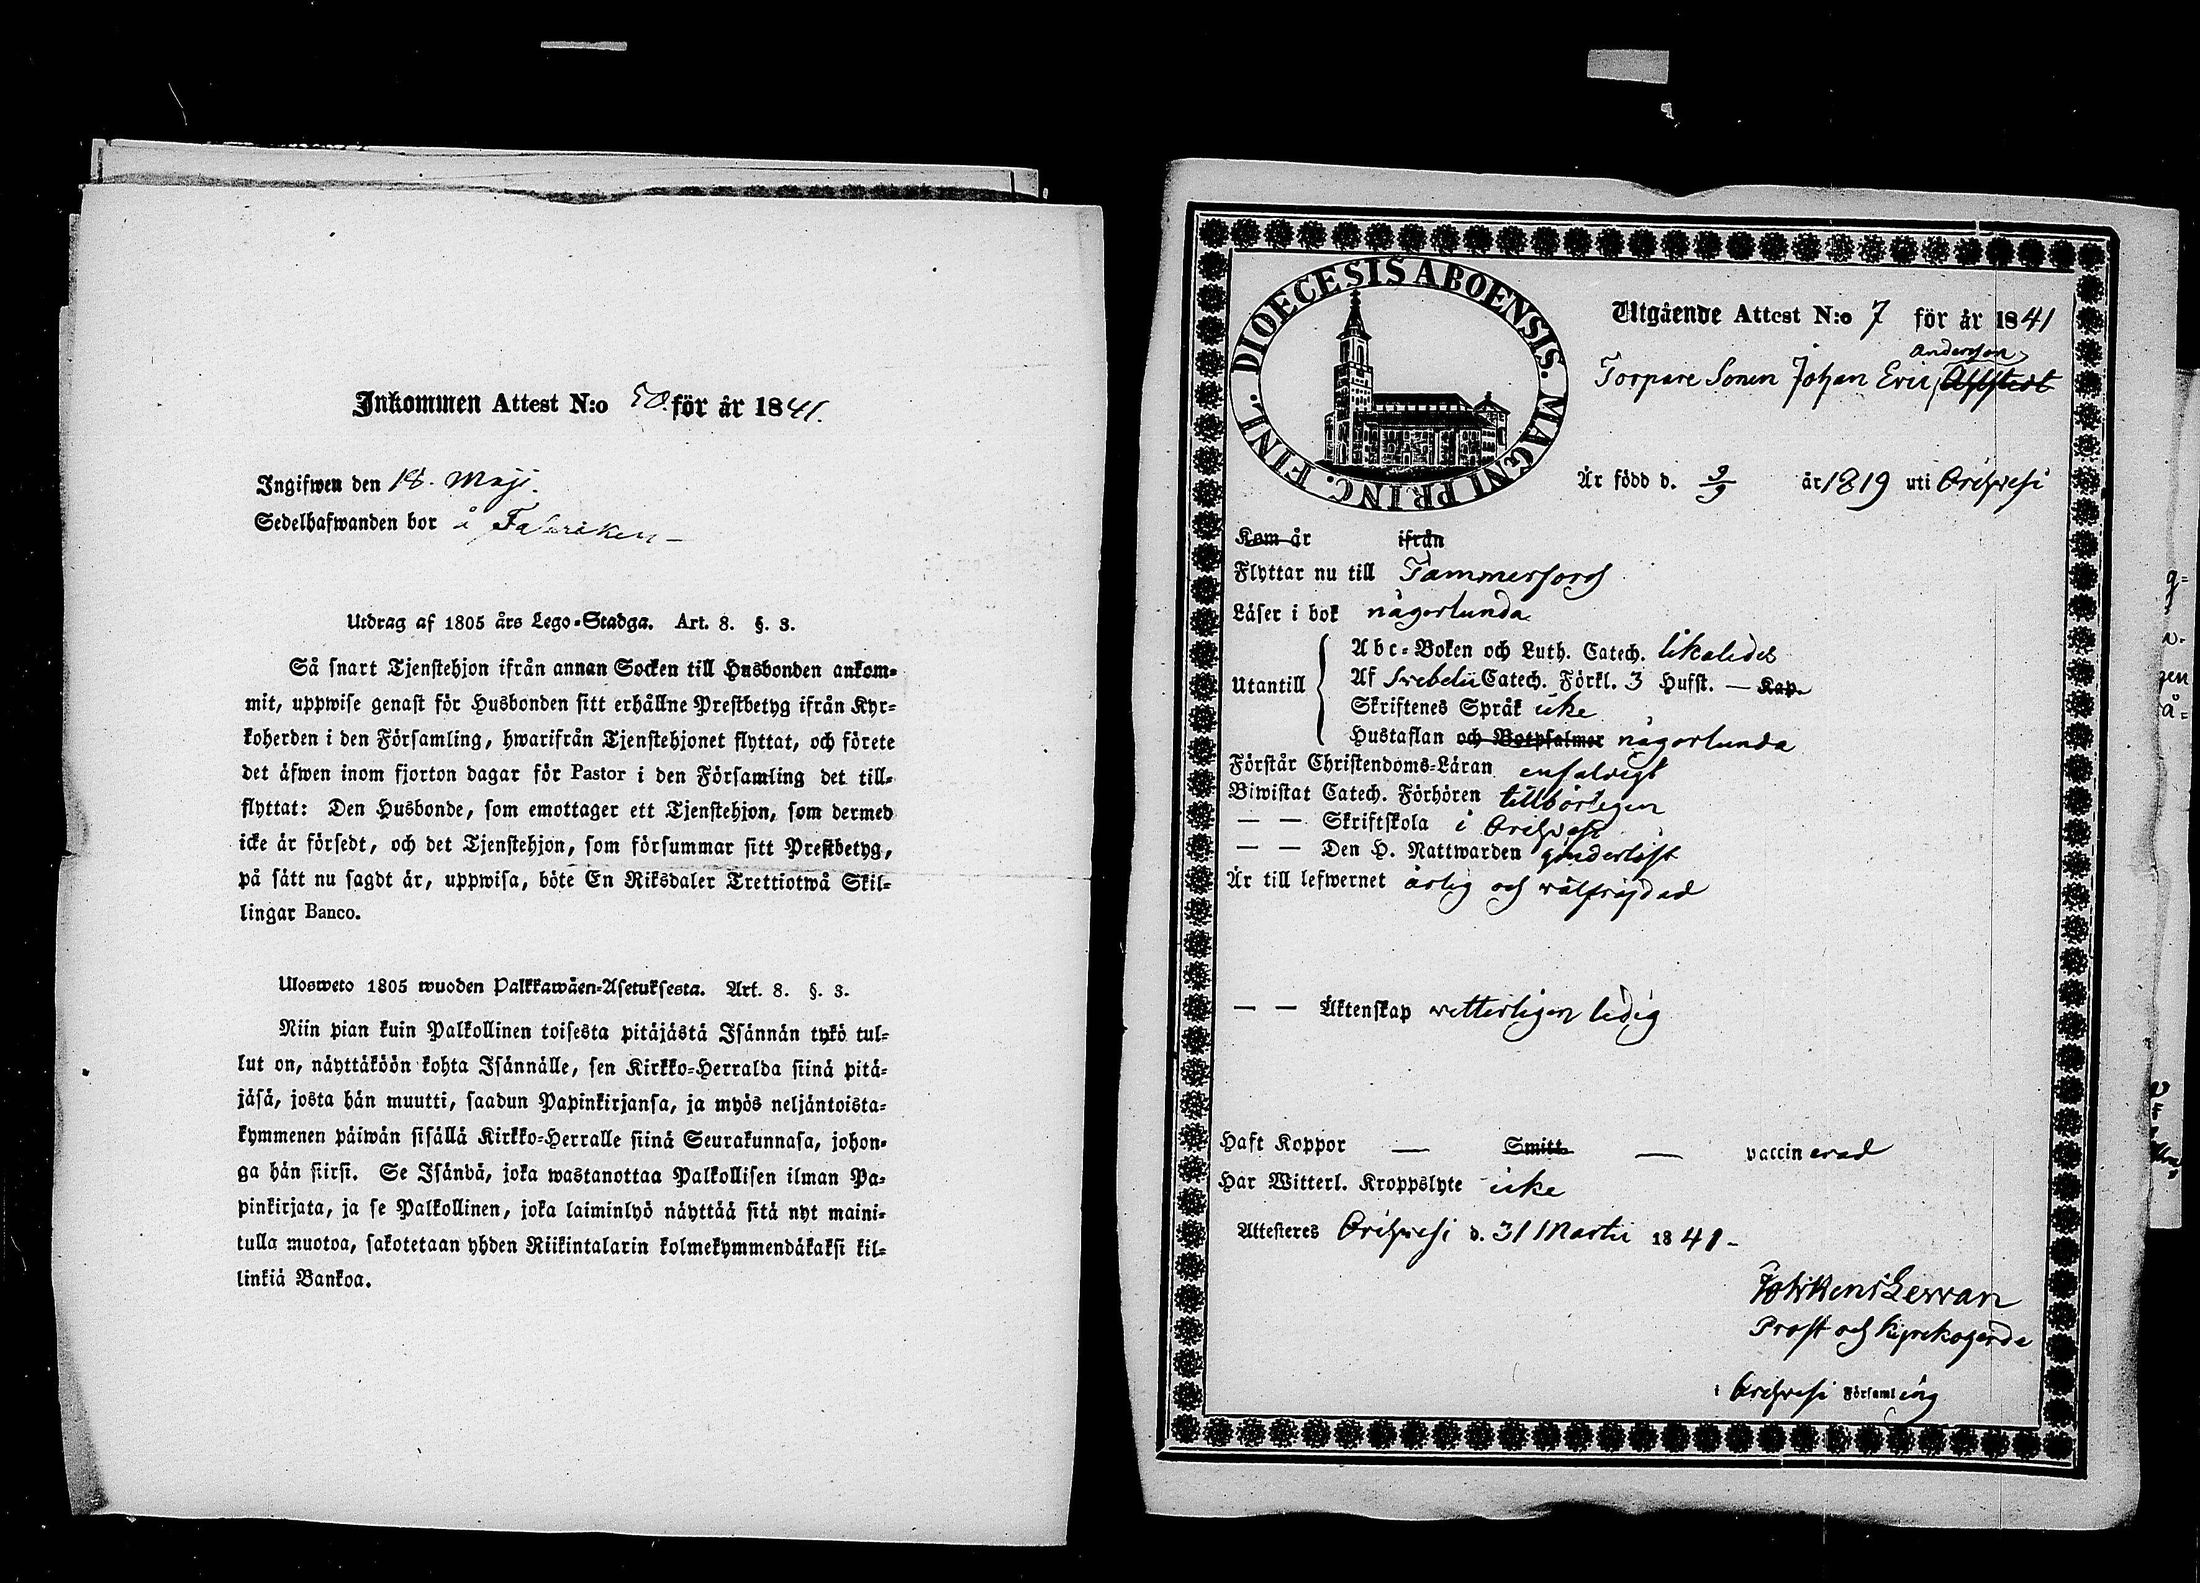 Inkommen Attest N:o 50. för år 1841.
Ingifwen den 18. Maji.
Sedelhafwanden bor å Fabriken
Utdrag af 1805 års Lego-Stadga. Art. 8. §. 3.
Så snart Tjenstehjon ifrån annan Socken till Husbonden ankom-
mit, uppwise genast för Husbonden sitt erhållne Prestbetyg ifrån Kyr-
koherden i den Församling, hwarifrån Tjenstehjonet flyttat, och förete
det äfwen inom fjorton dagar för Pastor i den Församling det till-
flyttat: Den Husbonde, som emottager ett Tjenstehjon, som dermed
icke är försedt, och det Tjenstehjon, som försummar sitt Prestbetyg,
på sätt nu sagdt är, uppwisa, böte En Riksdaler Trettiotwå Skil-
lingar Banco.
Ulosweto 1805 wuoden Palkkawäen-Asetuksesta. Art. 8. §. 3.
Niin pian kuin Palkollinen toisesta pitäjästä Isännän tykö tul-
lut on, näyttäköön kohta Isännälle, sen Kirkko-Herralda siinä pitä-
jäsä, josta hän muutti, saadun Papinkirjansa, ja myös neljäntoista-
kymmenen päiwän sisällä Kirkko-Herralle siinä Seurakunnasa, johon-
ga hän siirsi. Se Isändä, joka wastanottaa Palkollisen ilman Pa-
pinkirjata, ja se Palkollinen, joka laiminlyö näyttää sitä nyt maini-
tulla muotoa, sakotetaan yhden Riikintalarin kolmekymmendäkaksi kil-
linkiä Bankoa.
DIOECESIS ABOENSIS. MAGNI PRINC. FINL.
Utgående Attest N:o 7 för år 1841
Andersson
Torpare Sonen Johan Eric
Är född d. 9/9 år 1819 uti Orihvesi
Kom år ifrån
Flyttar nu till Tammerfors
Läser i bok någorlunda
Utantill
Abc-Boken och Luth. Catech. likaledes
Af Svebelii Catech. Förkl. 3 Hufst. — Kap.
Skriftenes Språk icke
Hustaflan och Botpsalmer någorlunda
Förstår Christendoms-Läran enfaldigt
Biwistat Catech. Förhören tillbörligen
— — Skriftskola i Orihvesi
— — Den H. Nattwarden
Är till lefwernet ärlig och välfrejdad
— — Äktenskap vetterligen ledig
Haft Koppor — Smitt. — vaccinerad
Har Witterl. Kroppslyte icke
Attesteres Orihvesi d. 31 Martii 1841 -
Prost och Kyrkoherde
i Orihvesi Församling